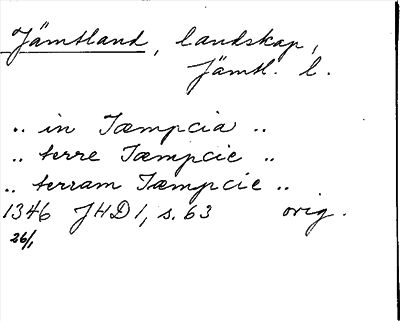 Jämtland, landskap,
Jämtl. l.
.. in Iæmpcia ..
.. terre Iæmpcie ..
.. terram Iæmpcie ..
1346 JHD 1, s. 63 orig.
26/1